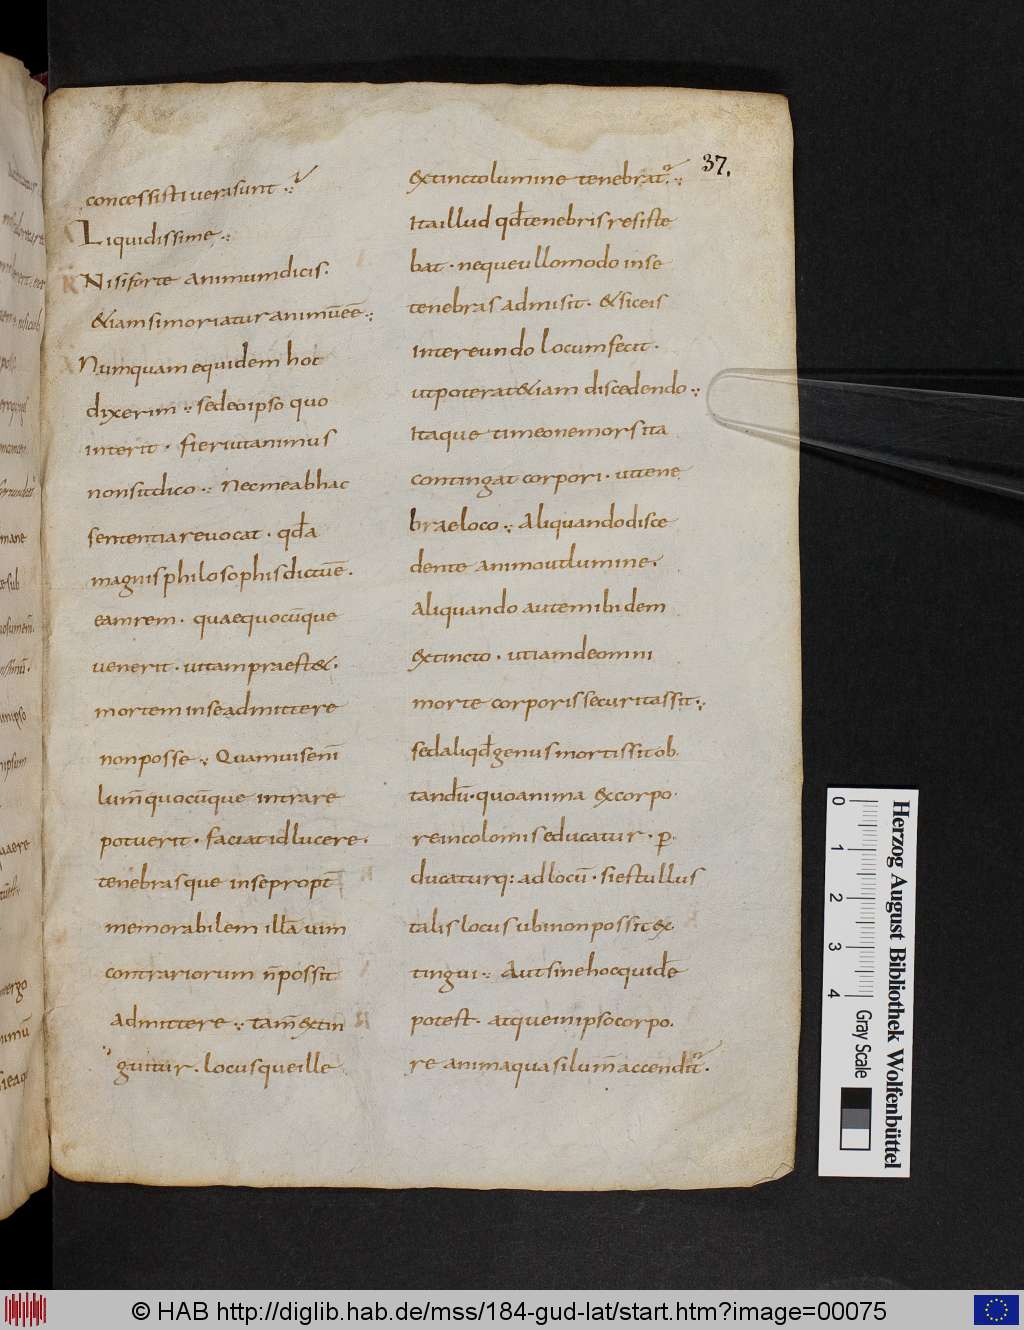 37.
concessisti vera sunt
Liquidissime
R Nisi forte animum dicis.
&iam si moriatur animū eē
Numquam equidem hoc
dixerim sed eo ipso quo
interit. fieri ut animus
non sit dico. Nec me ab hac
sententia revocat. qđ a
magnis philosophis dictū ē.
eam rem. quae quocūque
venerit. vitam praest&.
mortem in se admittere
non posse. Quamvis enī
lum̄ quocūque intrare
potuerit. faciat id lucere.
tenebrasque in se propt̄
memorabilem illā vim
contrariorum n̄ possit
admittere. tam̄ extin
guitur. locusque ille
extincto lumine tenebrat.
Ita illud qđ tenebris resiste
bat. neque ullo modo in se
tenebras admisit. & sic eis
intereundo locum fecit.
ut poterat &iam discedendo
Itaque timeo ne mors ita
contingat corpori. ut tene
brae loco. Aliquando disce
dente animo ut lumine.
Aliquando autem ibidem
extincto. ut iam de omni
morte corporis securitas sit.
sed aliqđ genus mortis sit ob
tandū. quo anima ex corpo
re incolomis educatur. p̱
ducaturq: ad locū. si est ullus
talis locus ubi non possit ex
tingui. Aut si ne hoc quidē
potest. atque in ipso corpo.
re anima quasi lum̄ accendit̄.
Herzog August Bibliothek Wolfenbüttel
0 1 2 3 4
Gray Scale
© HAB http://diglib.hab.de/mss/184-gud-lat/start.htm?image=00075